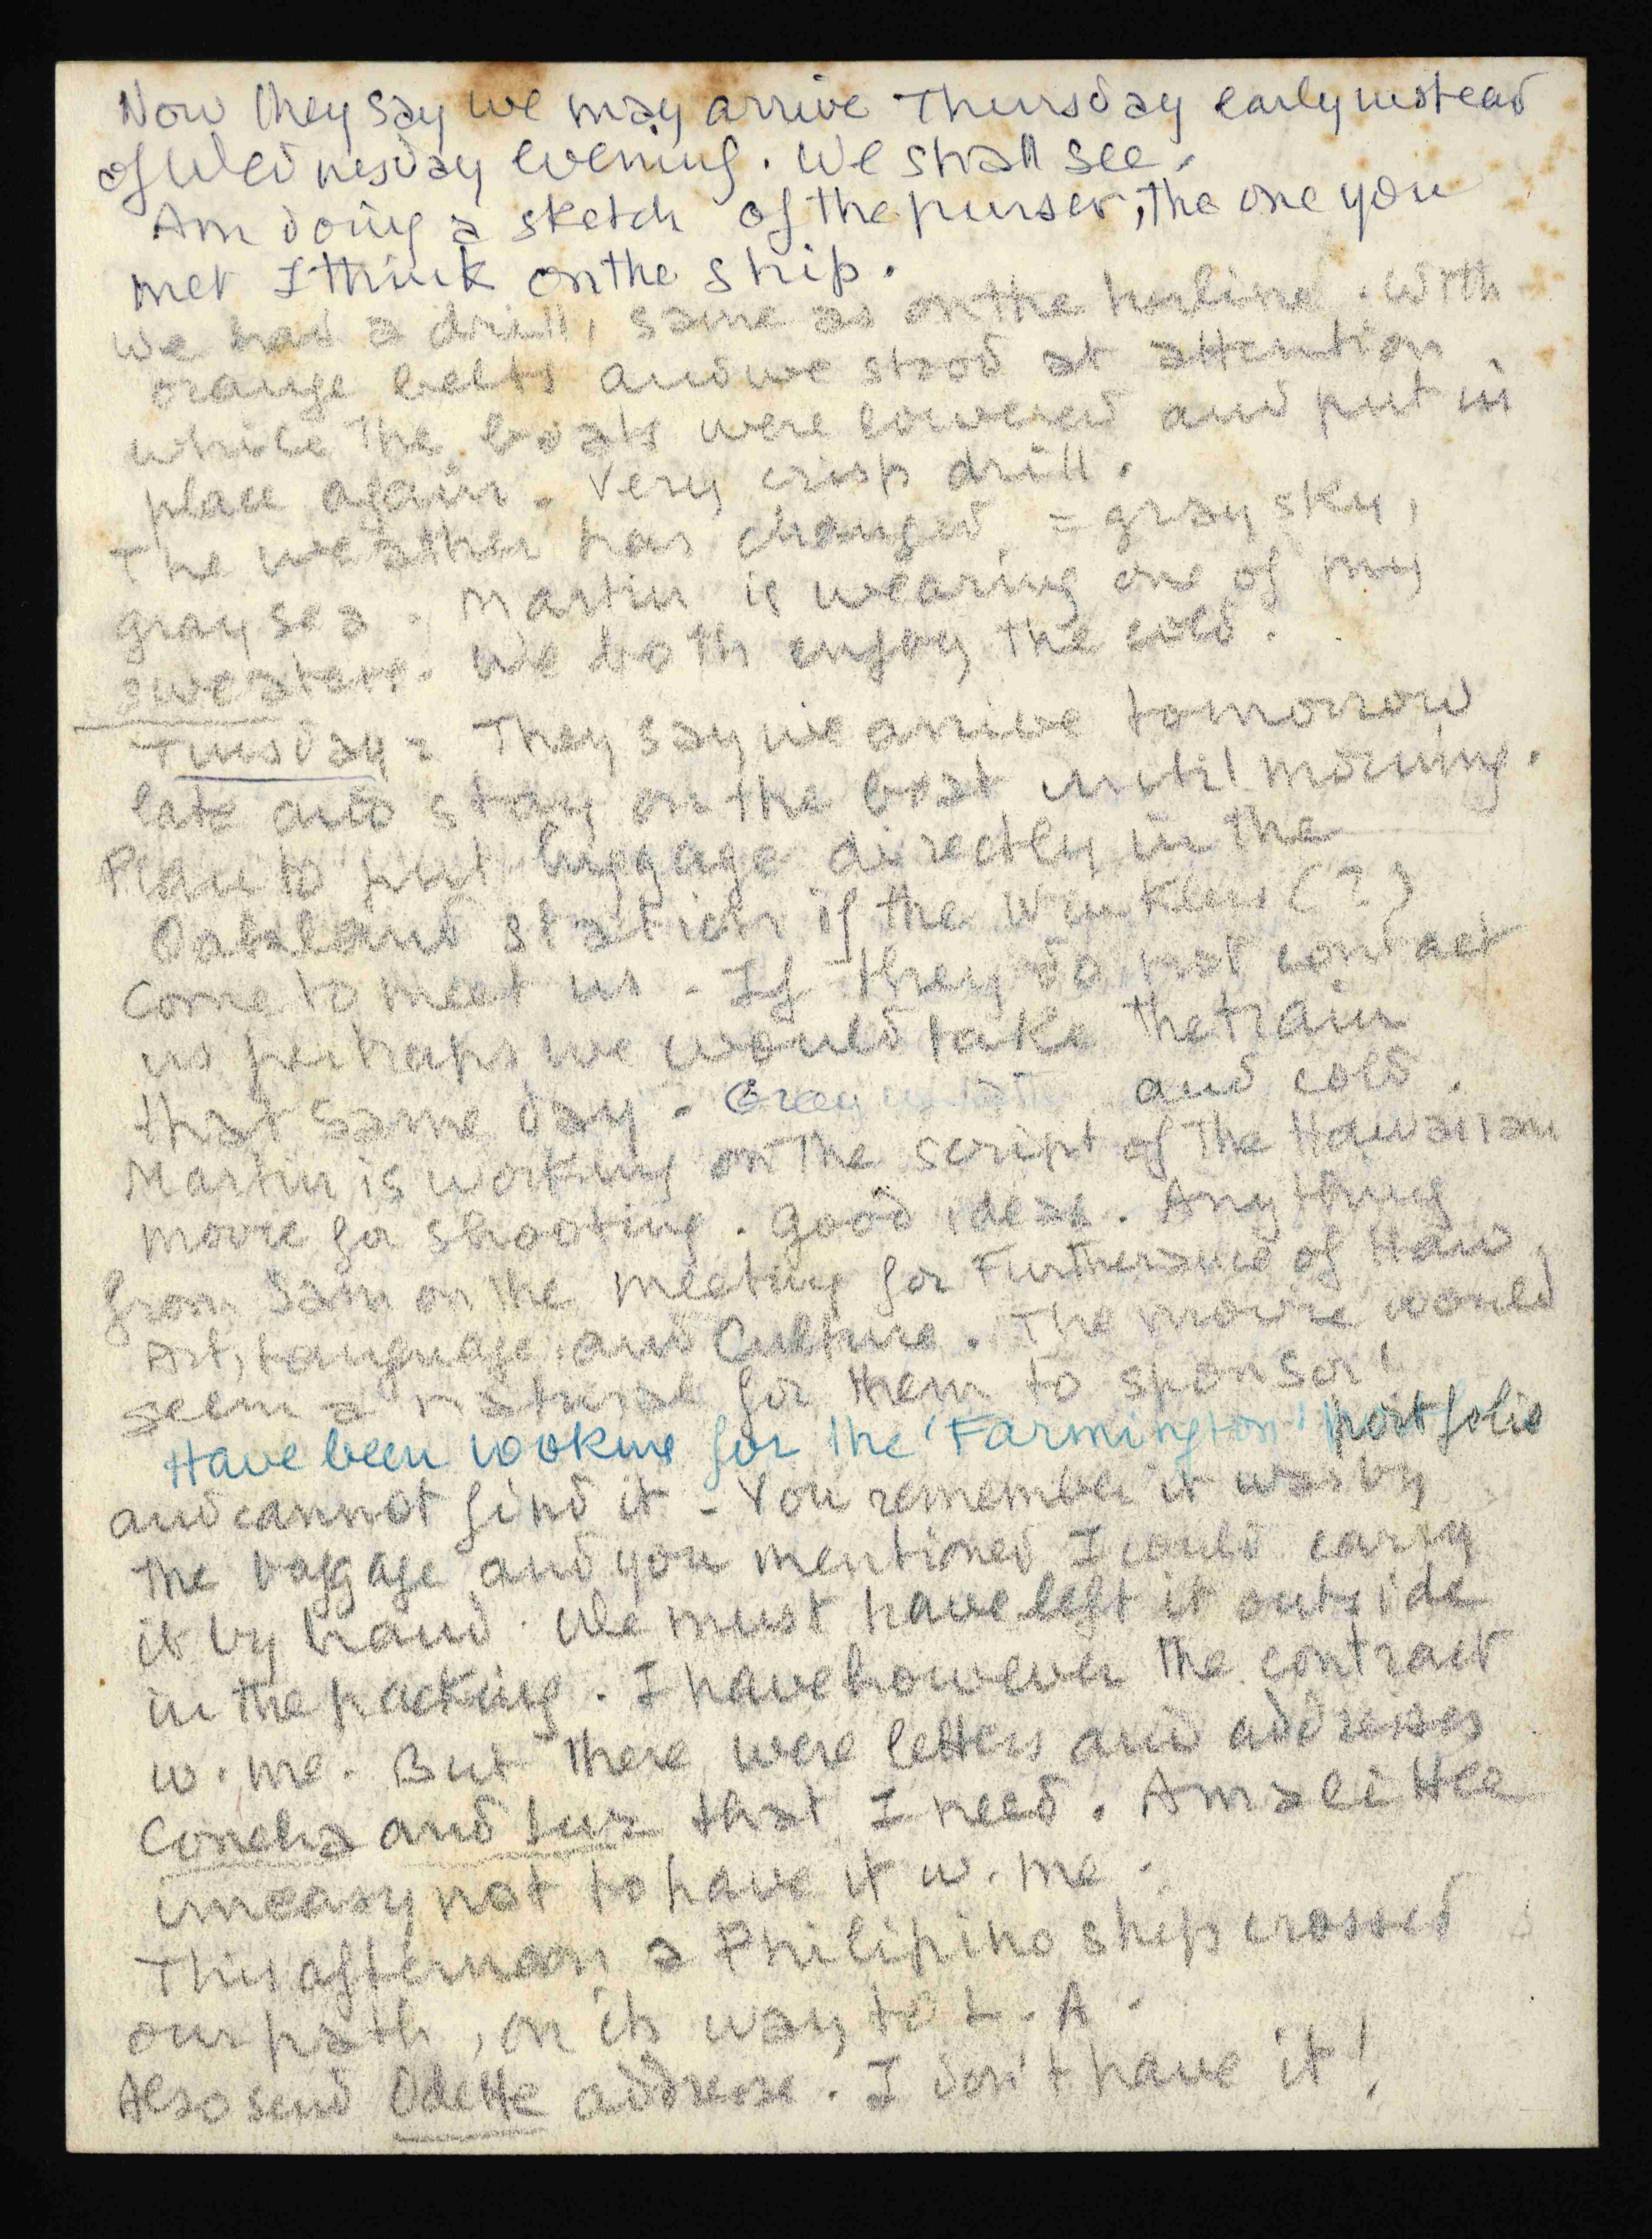 Now they say we may arrive Thursday early instead
of Wednesday evening. We shall see.
Am doing a sketch of the purser, the one you
met I think on the ship.
We had a drill, same as on the Lurline. With
orange belts and we stood at attention
while the boats were lowered and put in
place again. Very crisp drill.
The weather has changed = gray sky,
gray sea. Martin is wearing one of my
sweaters. We both enjoy the cold.
Tuesday = They say we arrive tomorrow
late and stay on the boat until morning.
Plan to put luggage directly in the
Oakland station if the Winklers (?)
come to meet us - If they do not contact
us perhaps we would take the train
that same day. Gray and cold.
Martin is working on the script of the Hawaiian
movie for shooting. Good ideas. Anything
from Sam on the meeting for Furtherance of Haw.
Art, Language and Culture. The movie would
seem a natural for them to sponsor!
Have been looking for the 'Farmington' portfolio
and cannot find it - You remember it was by
the baggage and you mentioned I could carry
it by hand. We must have left it outside
in the packing. I have however the contract
w. me. But there were letters and addresses
Concha and Luz that I need. Am a little
uneasy not to have it w. me.
This afternoon a Philipino ship crossed
our path, on its way to L.A.
Also send Odette addresse. I don't have it!